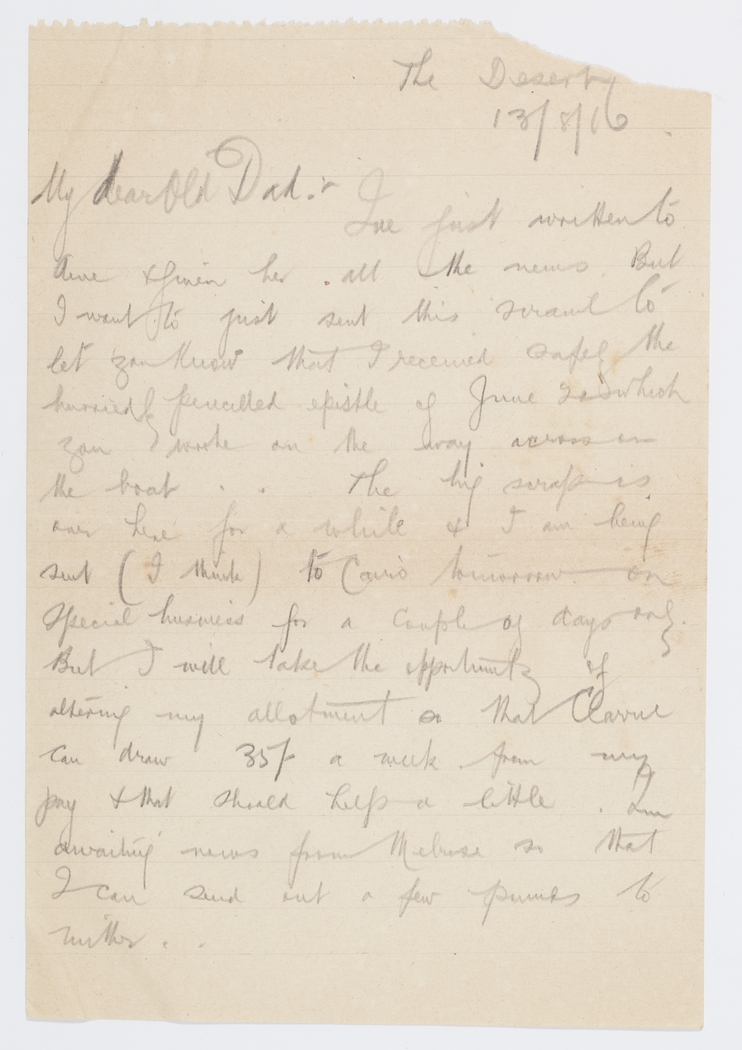 The Desert
13/8/16
My dear Old Dad :-
I've just written to
& given her . all the news. But
I want to just sent this scrawl to
let you know that I received safely the
hurriedly pencilled epistle of June which
you wrote on the way across in
the boat . . The big scrap is
over here for a while & I am being
sent (I think) to Cairo tomorrow on
Special business for a couple of days only.
But I will take the opportunity of
altering my allotment so that Carrie
can draw 35/- a week from my
pay & that should help a little . I am
awaiting news from Melrose so that
I can send out a few pounds to
mither . .